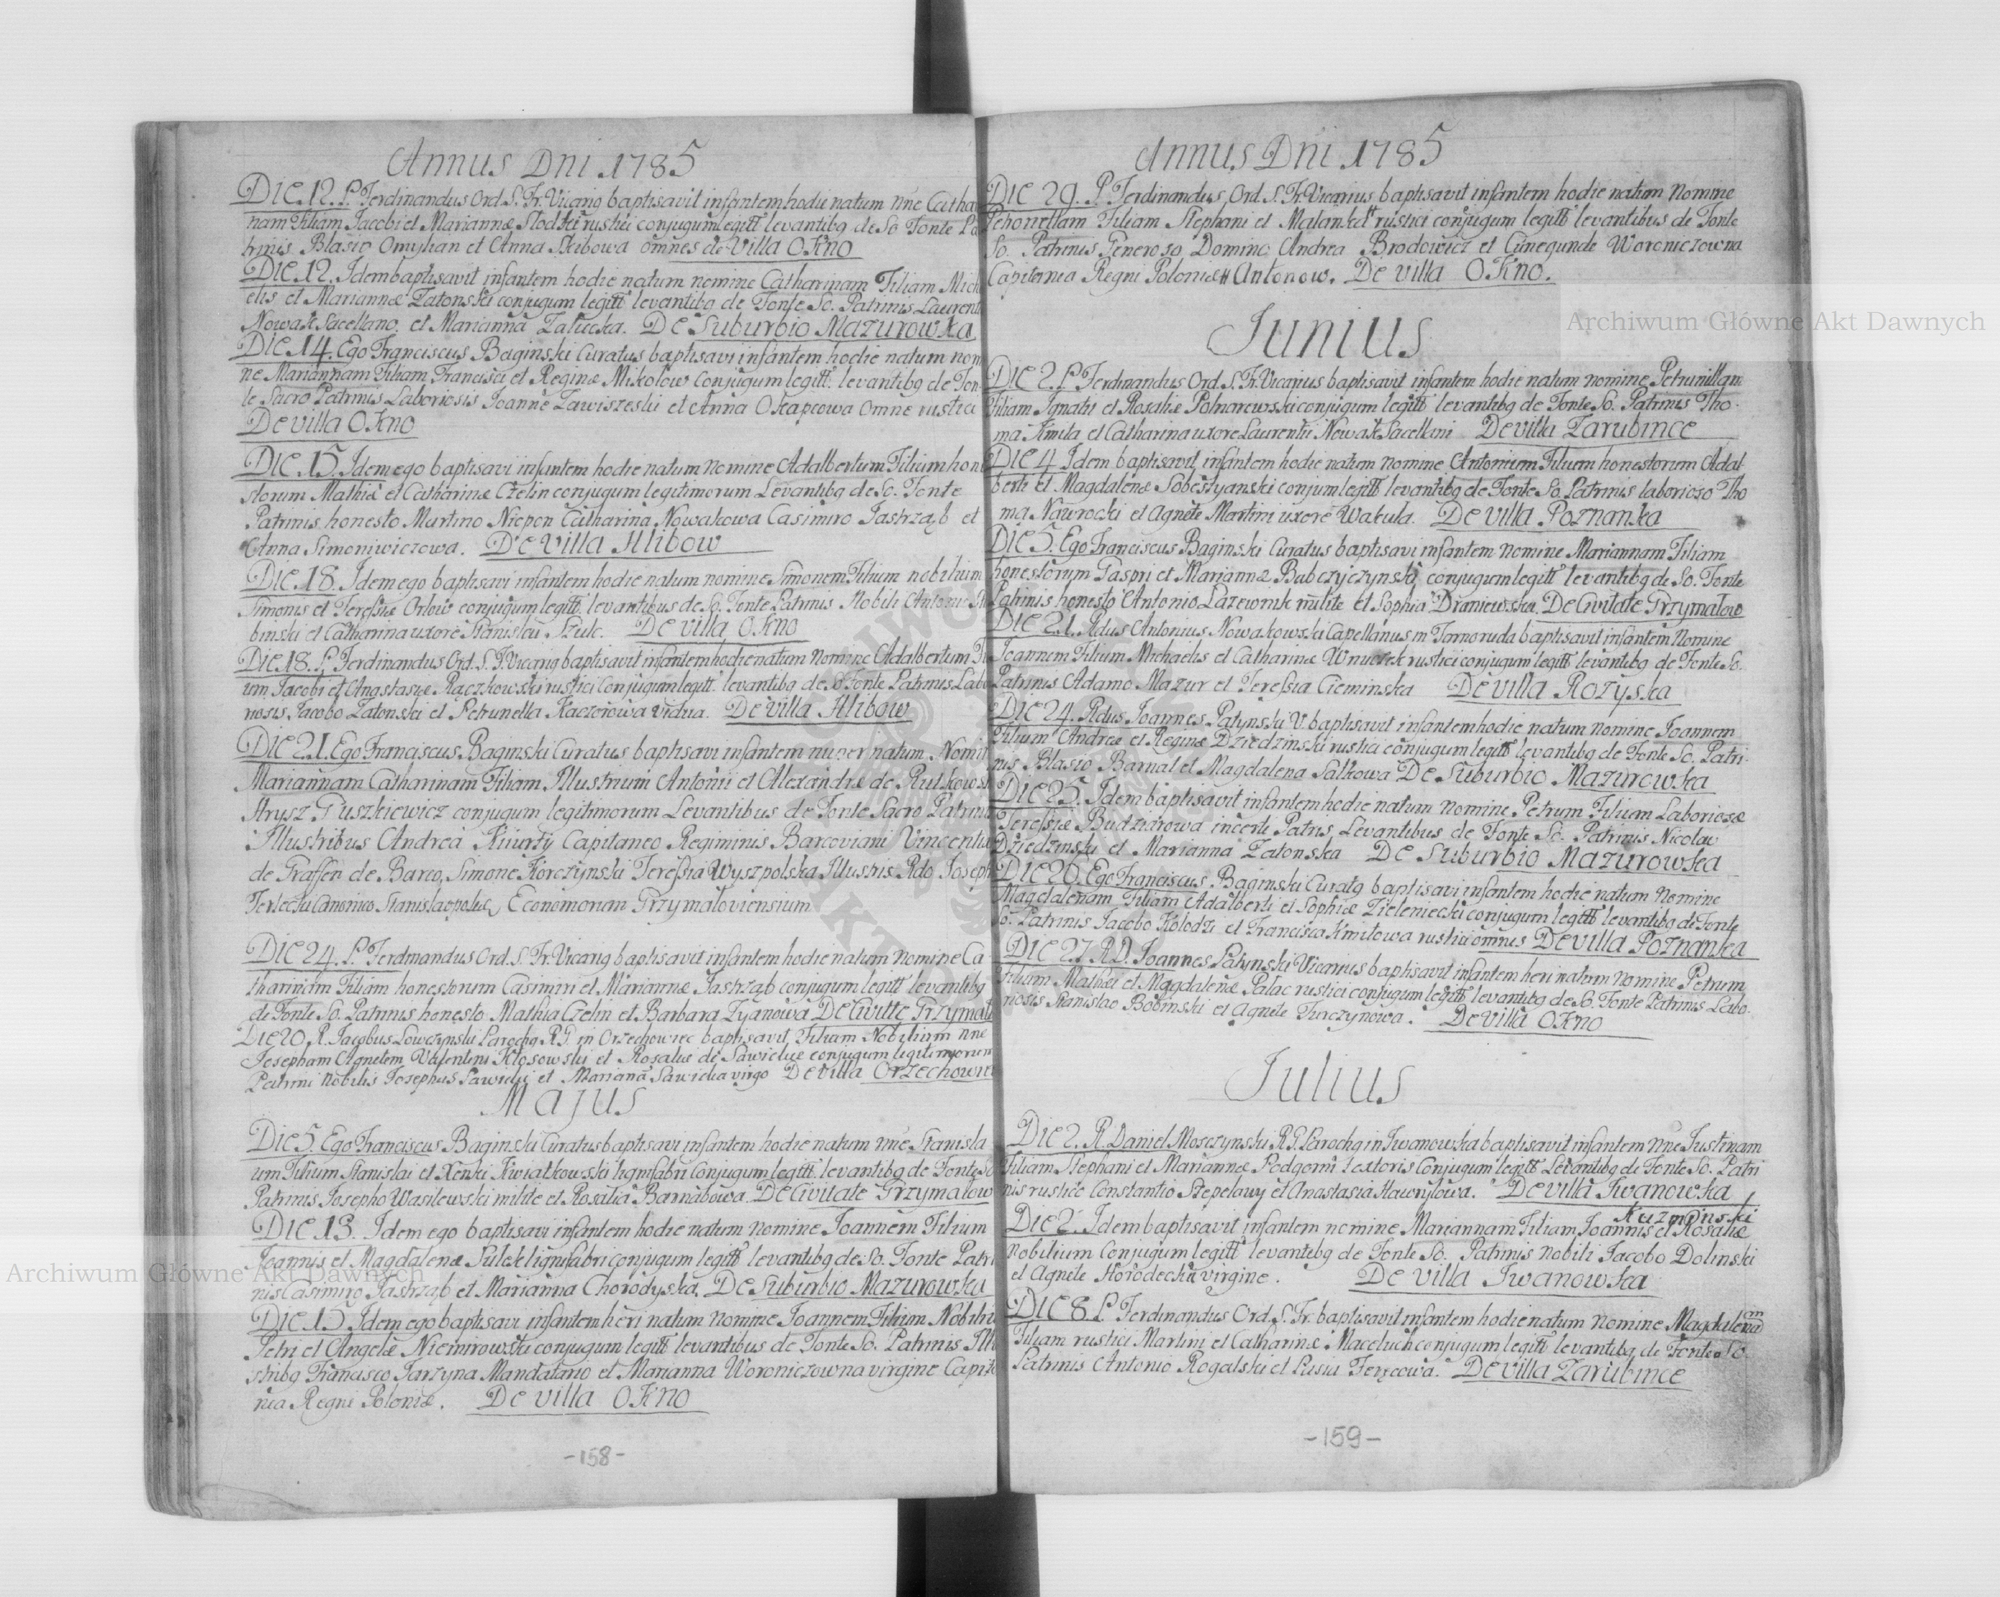 Annus Dni 1785
Die 12. P. Ferdinandus Ord. S. Fr. Vicarig baptisavit infantem hodie natum nne Catha
nam Filiam Jacobi et Mariannæ rustici conjugum legitt levantibg de So Fonte Pa
trinis Blasio Omylian et Anna Skibowa omnes de Villa Okno
Die 12. Idem baptisavit infantem hodie natum nomine Catharinam Filiam Mich
elis et Mariannæ Zatonski conjugum legitt levantibg de Fonte So. Patrinis Laurent
Nowak Sacellano. et Marianna Zalucka. De Suburbio Mazurowka
Die 14. Ego Franciscus Baginski Curatus baptisavi infantem hodie natum nom
ne Mariannam Filiam Francisci et Reginæ Mikolow Conjugum legitt. levantibg de Fon
te Sacro Patrinis Laboriosis Joanne et Anna Okapcowa omne rustici
De villa Okno
Die 15. Idem ego baptisavi infantem hodie natum nomine Adalbertum Filium hon
storum Mathiæ et Catharinæ Czelin conjugum legitimorum Levantibg de So. Fonte
Patrinis honesto Martino Niepon Catharina Nowakowa Casimiro Jastrząb et
Anna Simoniwiczowa. De Villa Hlibow
Die 18. Idem ego baptisavi infantem hodie natum nomine Simonem Filium nobilium
Simonis et Teressiæ Orlow conjugum legitt. levantibus de So. Fonte Patrinis Nobili Antonio
binski et Catharina uxore Stanislai Szulc. De villa Okno
Die 18. P. Ferdinandus Ord. S. F. Vicarig baptisavit infantem hodie natum nomine Adalbertum Fi
um Jacobi et Anastasiæ Raczkowski rustici Conjugum legitt. levantibg de So Fonte Patrinis Labo
riosis Jacobo Zatonski et Petrunella Kaczorowa vidua. De villa Hlibow
Die 21. Ego Franciscus Baginski Curatus baptisavi infantem nuper natum Nomin
Mariannam Catharinam Filiam Illustrium Antonii et Alexandræ de Rutkowsk
Hrysz Guszkiewicz conjugum legitimorum Levantibus de Fonte Sacro Patrinis
Illustribus Andrea Capitaneo Regiminis Barcoviani Vincentio
de Graffen de Barco, Simone Korczynski Teressia Wyszpolska Illustris Rdo Joseph
Terlecki Canonico Stanislaopolie Economorum Grzymałoviensium
Die 24. P. Ferdinandus Ord. S. Fr. Vicarig baptisavit infantem hodie natum nomine Ca
tharinam Filiam honestorum Casimiri et Mariannæ Jastrząb conjugum legitt levantibg
de Fonte So. Patrinis honesto Mathia Czelin et Barbara Zyanowa De Civitte Grzymalo
Die 20, R. Jacobus Łowczynski Parochg R. G. in Orzechowiec baptisavit Filiam Nobilium nne
Josepham Agnetem Valentini Kłosowski et Rosaliæ de Sawickie conjugum legitimorum
Patrini Nobilis Josephus Sawicki et Marianā Sawicka virgo De villa Orzechowiec
Majus
Die 5. Ego Franciscus Baginski Curatus baptisavi infantem hodie natum nne Stanisla
um Filium Stanislai et Xenki Kwiatkowski lignifabri Conjugum legitt. levantibg de Fonte So
Patrinis Josepho Wasilewski milite et Rosalia Barnabowa. De Civitate Grzymalow
Die 13. Idem ego baptisavi infantem hodie natum nomine Joannem Filium
Joannis et Magdalenæ Sulek lignifabri conjugum legitt levantibg de So. Fonte Patri
nis Casimiro Jastrząb et Marianna Chorodyska. De Suburbio Mazurowka
Die 15. Idem ego baptisavi infantem heri natum nomine Joannem Filium Nobiliu
Petri et Angelæ Niemirowski conjugum legitt levantibus de Fonte So. Patrinis Illu
stribg Francisco Jarzyna Mandatario et Marianna Woroniczowna virgine Capita
nia Regni Poloniæ. De villa Okno
-158-
Annus Dni 1785
Die 29. P. Ferdinandus, Ord. S. Fr. Vicarius baptisavit infantem hodie natum Nomine
Petronellam Filiam Stephani et rustici conjugum legitt levantibus de Fonte
So. Patrinis Generoso Domino Andrea Brodowicz et Cunegunde Woroniczowna
Capitanea Regni Poloniæ Antonow. De villa Okno.
Junius
Die 2. P. Ferdinandus Ord. S. Fr. Vicarius baptisavit infantem hodie natum nomine Petrunillam
Filiam Ignatii et Rosaliæ Polnarewski conjugum legitt levantibg de Fonte So. Patrinis Tho-
ma Kmita et Catharina uxore Laurentii Nowak Sacellani De villa Zarubince
Die 4 Idem baptisavit infantem hodie natum nomine Antonium Filium honestorum Adal-
berti et Magdalenæ Sobestyanski conjum legitt levantibg de Fonte So. Patrinis laborioso Tho
ma Nawrocki et Agnete Martini uxore Wakula. De villa Poznanka
Die 5. Ego Franciscus Baginski Curatus baptisavi infantem nomine Mariannam Filiam
honestorum Gaspri et Mariannæ Babczyczynski conjugum legitt levantibg de So. Fonte
Patrinis honesto Antonio Lazewnik milite et Sophia Draniewska. De Civitate Grzymalow
Die 21. Rdus Antonius Nowakowski Capellanus in Tarnoruda baptisavit infantem Nomine
Joannem Filium Michaelis et Catharinæ Wnuczek rustici conjugum legitt levantibg de Fonte So.
Patrinis Adamo Mazur et Teressia Cieminska De villa Rozyska
Die 24. Rdus Joannes Patynski V. baptisavit infantem hodie natum nomine Joannem
Filium Andreæ et Reginæ Dziedzinski rustici conjugum legitt levantibg de Fonte So. Patri-
nis Blasio Barnal et Magdalena Salkowa De Suburbio Mazurowka
Die 25. Idem baptisavit infantem hodie natum nomine Petrum Filium Laboriosæ
Teressiæ Budziarowa incerti Patris Levantibus de Fonte So. Patrinis Nicolao
Dziedzinski et Marianna Zatonska De Suburbio Mazurowka
Die 26. Ego Franciscus Baginski Curatg baptisavi infantem hodie natum nomine
Magdalenam Filiam Adalberti et Sophiæ Zieleniecki conjugum legitt levantibg de Fonte
So. Patrinis Jacobo Kolodzi et Francisca Kmitowa rustici omnes De villa Poznanka
Die 27. R. D. Joannes Patynski Vicarius baptisavit infantem heri natum nomine Petrum
Filium Mathæi et Magdalenæ Palac rustici conjugum legitt levantibg de So. Fonte Patrinis Labo-
riosis Stanislao Bobinski et Agnete Turczynowa. De Villa Okno
Julius
Die 2. R. Daniel Mosczynski R. G. Parochg in Iwanowka baptisavit infantem nne Justinam
Filiam Stephani et Mariannæ Podgorni textoris Conjugum legitt Levantibg de Fonte So. Patri
nis rustice Constantio Szepelawy et Anastasia Hawrylowa. De villa Iwanowka
Kuzminski
Die 2. Idem baptisavit infantem nomine Mariannam Filiam Joannis et Rosaliæ
Nobilium Conjugum legitt levantibg de Fonte So. Patrinis nobili Jacobo Dolinski
et Agnete Horodecka virgine. De villa Iwanowka
Die 8. P. Ferdinandus Ord. S. Fr. baptisavit infantem hodie natum nomine Magdalenam
Filiam rustici Martini et Catharinæ Maceluch conjugum legitt levantibg de Fonte So.
Patrinis Antonio Rogalski et Lusia Feręcowa. De villa Zarubince
-159-
Archiwum Główne Akt Dawnych
Archiwum Główne Akt Dawnych